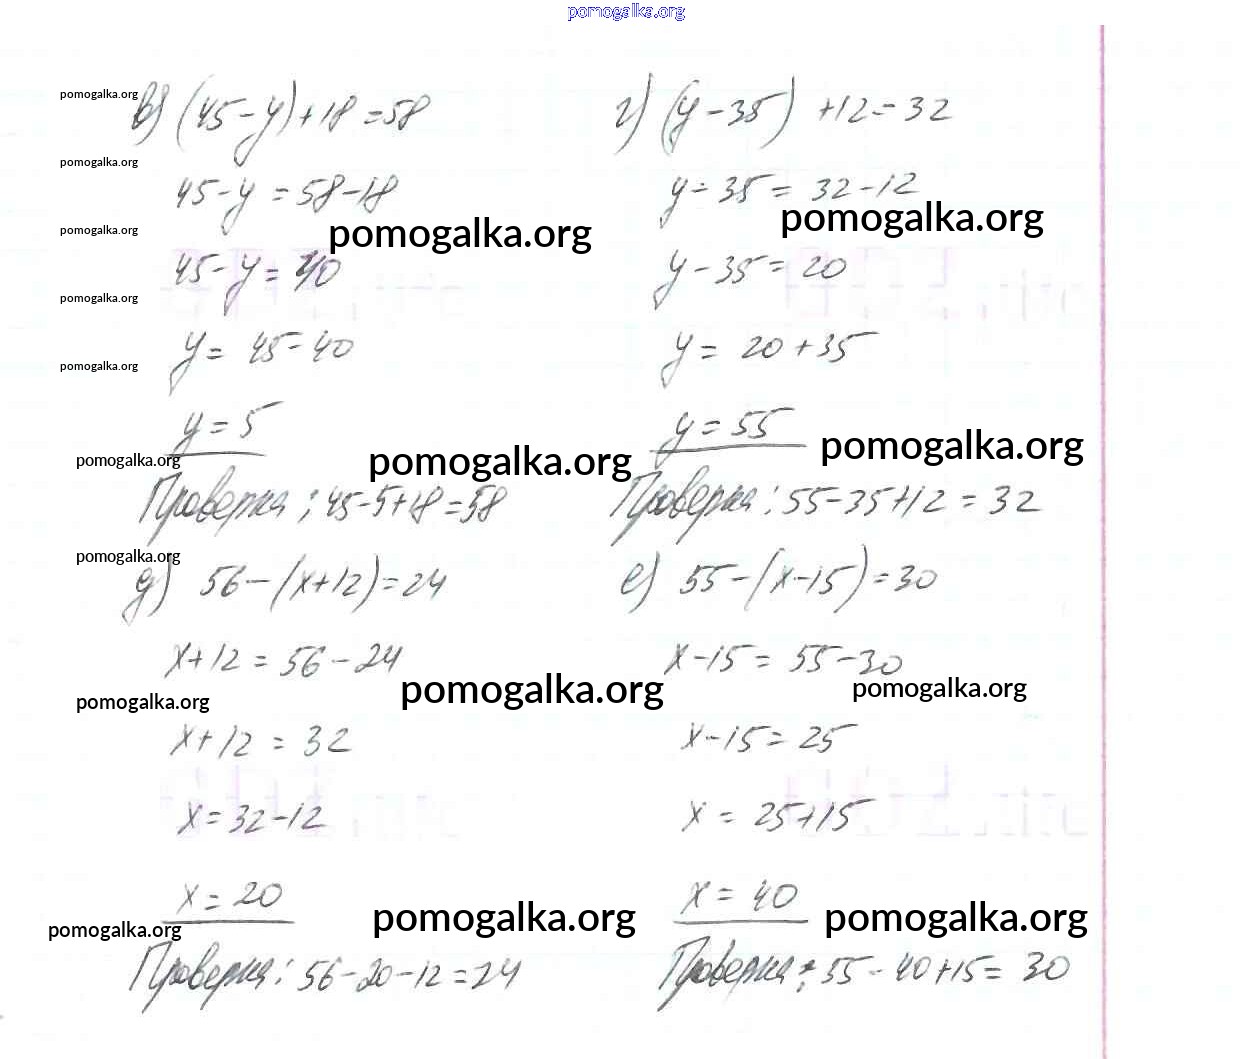 pomogalka.org
в) (45-y)+18=58
г) (y-35) +12=32
pomogalka.org
pomogalka.org
45-y=58-18
y-35=32-12
pomogalka.org
pomogalka.org
pomogalka.org
45-y=40
y-35=20
pomogalka.org
y=45-40
y=20+35
pomogalka.org
y=5
y=55
pomogalka.org
pomogalka.org
pomogalka.org
Проверка: 45-5+18=58
Проверка: 55-35+12=32
pomogalka.org
д) 56-(x+12)=24
е) 55-(x-15)=30
x+12=56-24
x-15=55-30
pomogalka.org
pomogalka.org
pomogalka.org
x+12=32
x-15=25
x=32-12
x=25+15
x=20
x=40
pomogalka.org
pomogalka.org
pomogalka.org
Проверка: 56-20-12=24
Проверка: 55-40+15=30